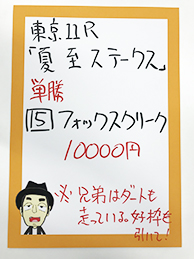 東京11R
「夏至ステークス」
単勝
15 フォックスクリーク
10000円
※兄弟はダートも
走っている。好枠を
引いて!